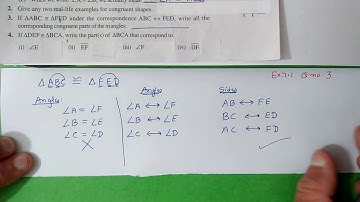 2. Give any two real-life examples for congruent shapes.
3. If ΔABC ≅ ΔFED under the correspondence ABC ↔ FED, write all the
corresponding congruent parts of the triangles.
4. If ΔDEF ≅ ΔBCA, write the part(s) of ΔBCA that correspond to
(i) ∠E (ii) EF (iii) ∠F (iv) DF
Ex 7.1 Q no-3
Δ ABC ≅ Δ FED
Angles Angles Sides
∠A = ∠F ∠A ↔ ∠F AB ↔ FE
∠B = ∠E ∠B ↔ ∠E BC ↔ ED
∠C = ∠D ∠C ↔ ∠D AC ↔ FD